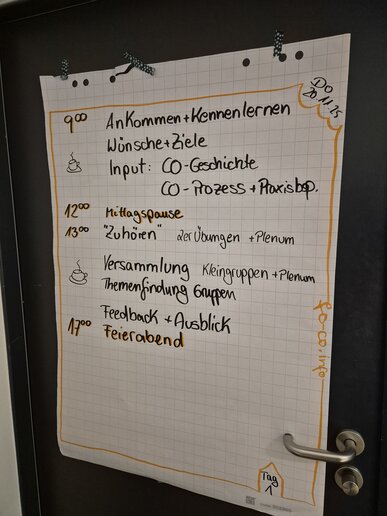 Do
20.11.25
9⁰⁰ Ankommen + Kennenlernen
Wünsche + Ziele
Input: CO-Geschichte
CO-Prozess + Praxisbsp.
12⁰⁰ Mittagspause
13⁰⁰ "Zuhören" 2er Übungen + Plenum
Versammlung Kleingruppen + Plenum
Themenfindung Gruppen
Feedback + Ausblick
17⁰⁰ Feierabend
fo-co.info
Tag
1